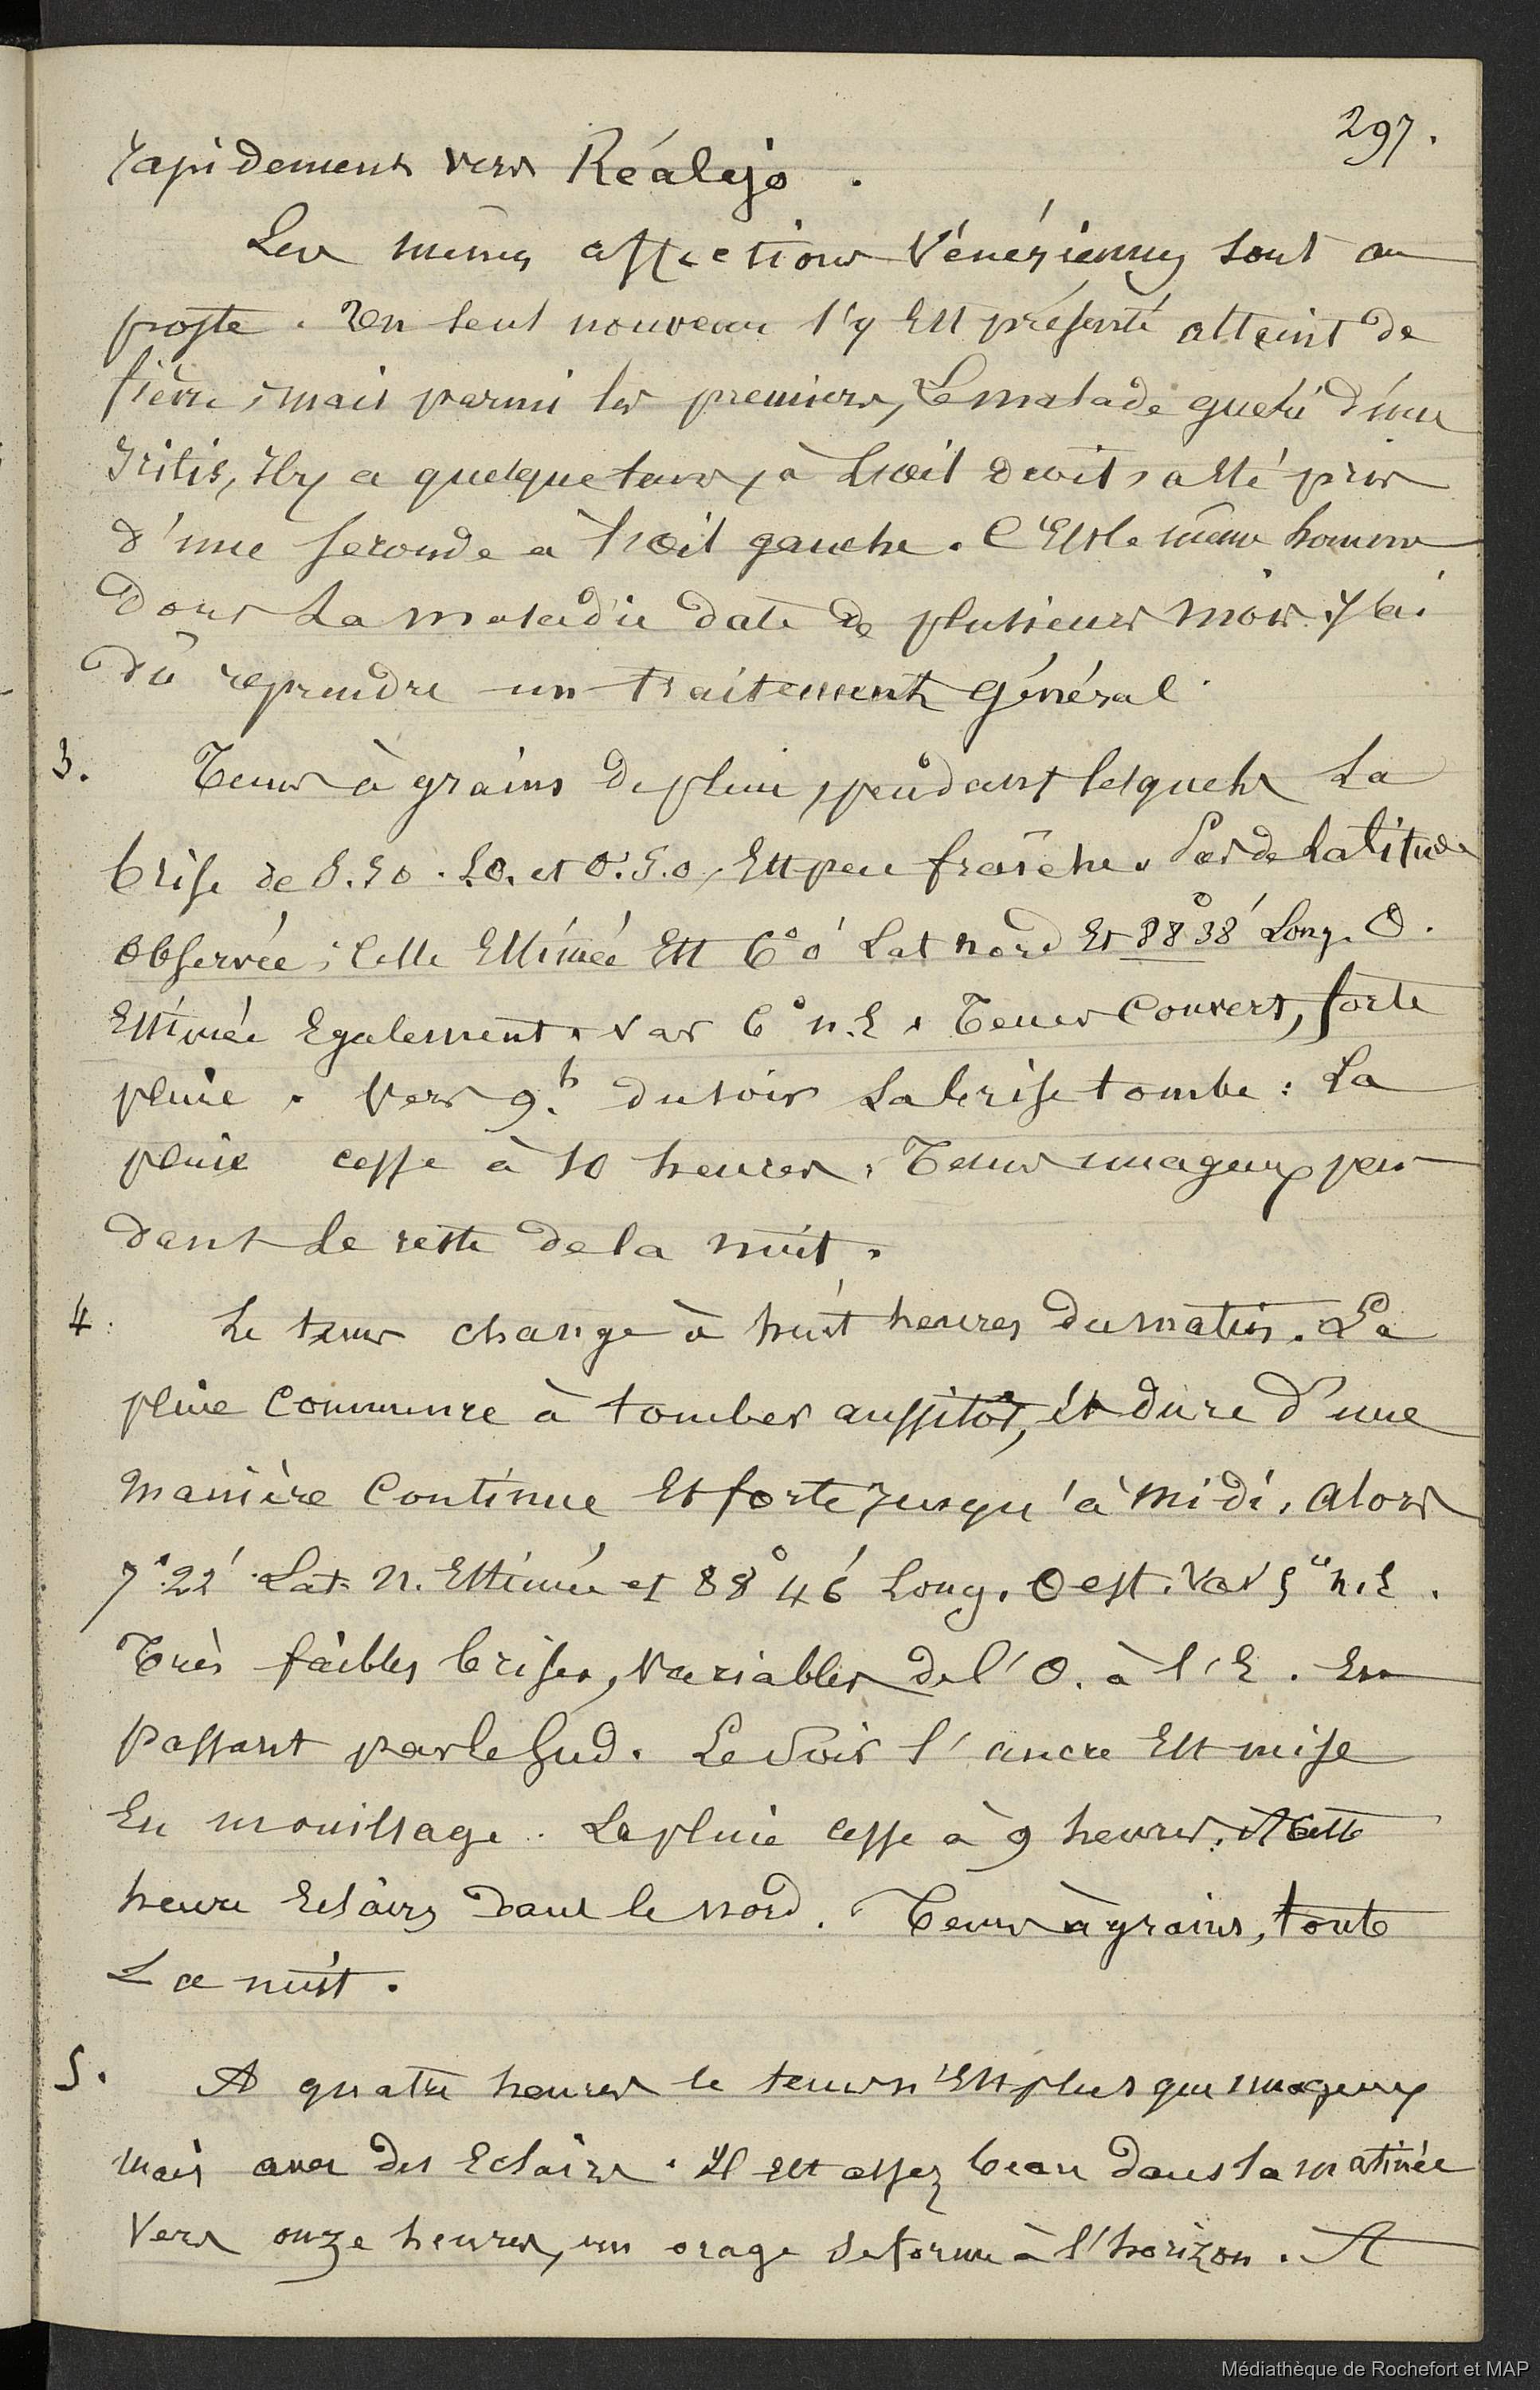 297.
rapidement vers Réalejo.
Les mêmes affections vénériennes sont au
poste. Un seul nouveau s'y est présenté atteint de
fièvre ; mais parmi les premiers, le malade guéri d'une
iritis, il y a quelque tems, à l'œil droit, a été pris
d'une seconde à l'œil gauche. C'est le même homme
dont la maladie date de plusieurs mois. J'ai
dû reprendre un traitement général.
3. Tems à grains de pluie, pendant lesquels la
brise de S.SO. SO. et O.S.O, est peu fraîche. Pas de latitude
observée ; celle estimée est 6° 0' Lat nord et 88° 38' Long. O.
estimée également. Var 6° n.E. Tems couvert, forte
pluie. Vers 9.h du soir la brise tombe : la
pluie cesse à 10 heures. Tems nuageux pen
dant le reste de la nuit.
4. Le tems change à huit heures du matin. La
pluie commence à tomber aussitôt, et dure d'une
manière continue et forte jusqu'à midi. Alors
7° 22' Lat. n. estimée et 88° 46' Long. Oest. Var 5° n.E.
Très faibles brises, variables de l'O. à l'E. en
passant par le Sud. Le soir l'ancre est mise
en mouillage. La pluie cesse à 9 heures. A cette
heure eclairs dans le nord. Tems à grains, toute
la nuit.
5. A quatre heures le tems n'est plus que nuageux
mais avec des eclairs. Il est assez beau dans la matinée
Vers onze heures, un orage se forme à l'horizon. A
Médiathèque de Rochefort et MAP